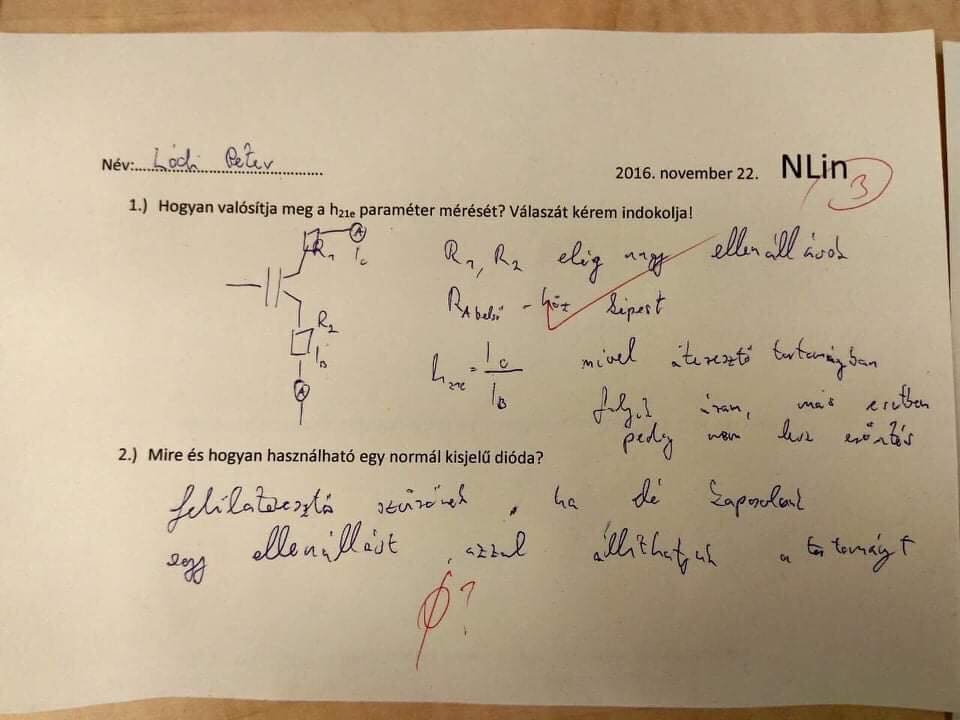 Név: Ládi Péter
2016. november 22. NLin 3
1.) Hogyan valósítja meg a h21e paraméter mérését? Válaszát kérem indokolja!
R1 A Ic
R1, R2 elég nagy ellenállások
RA belső - höz képest
R2
IB
A
h21e = Ic / IB mivel áteresztő tartományban
folyik áram, más esetben
pedig nem lesz erősítés
2.) Mire és hogyan használható egy normál kisjelű dióda?
felüláteresztő szűrőnek, ha kapcsolunk
egy ellenállást, azzal állíthatjuk a tartományt
Ø?